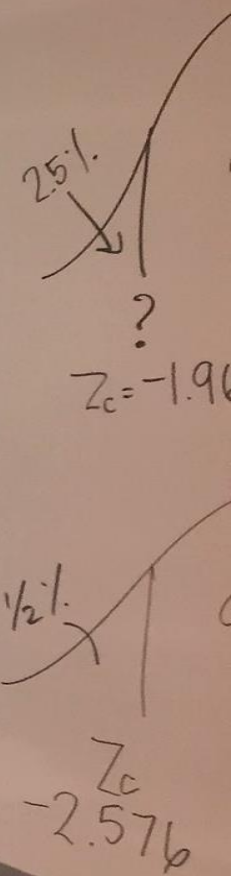 2.5%
?
Zc = -1.96
1/2%
Zc
-2.576